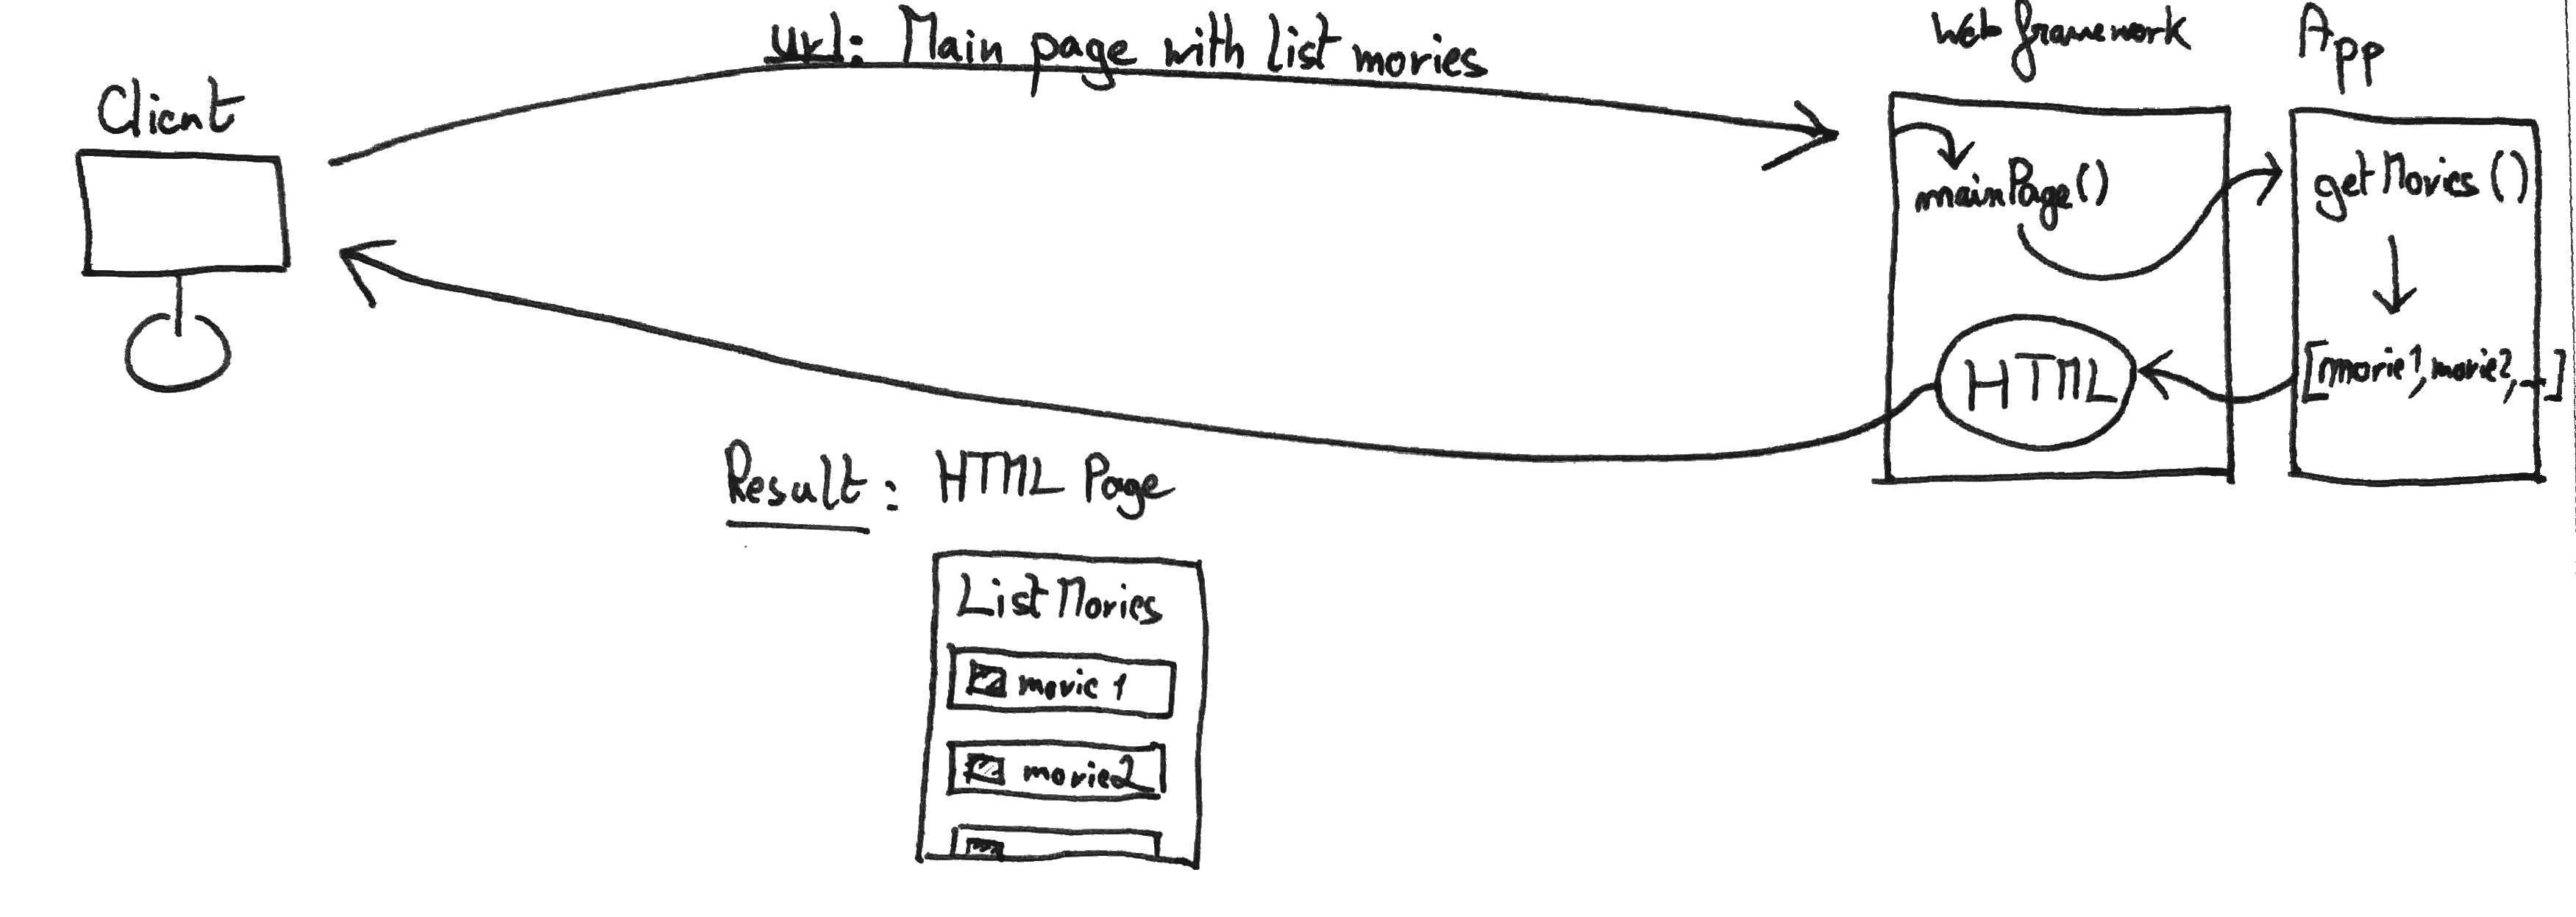 url: Main page with list movies
Web framework
App
Client
mainPage()
getMovies()
HTML
[movie1, movie2, ...]
Result: HTML Page
List Movies
movie 1
movie2